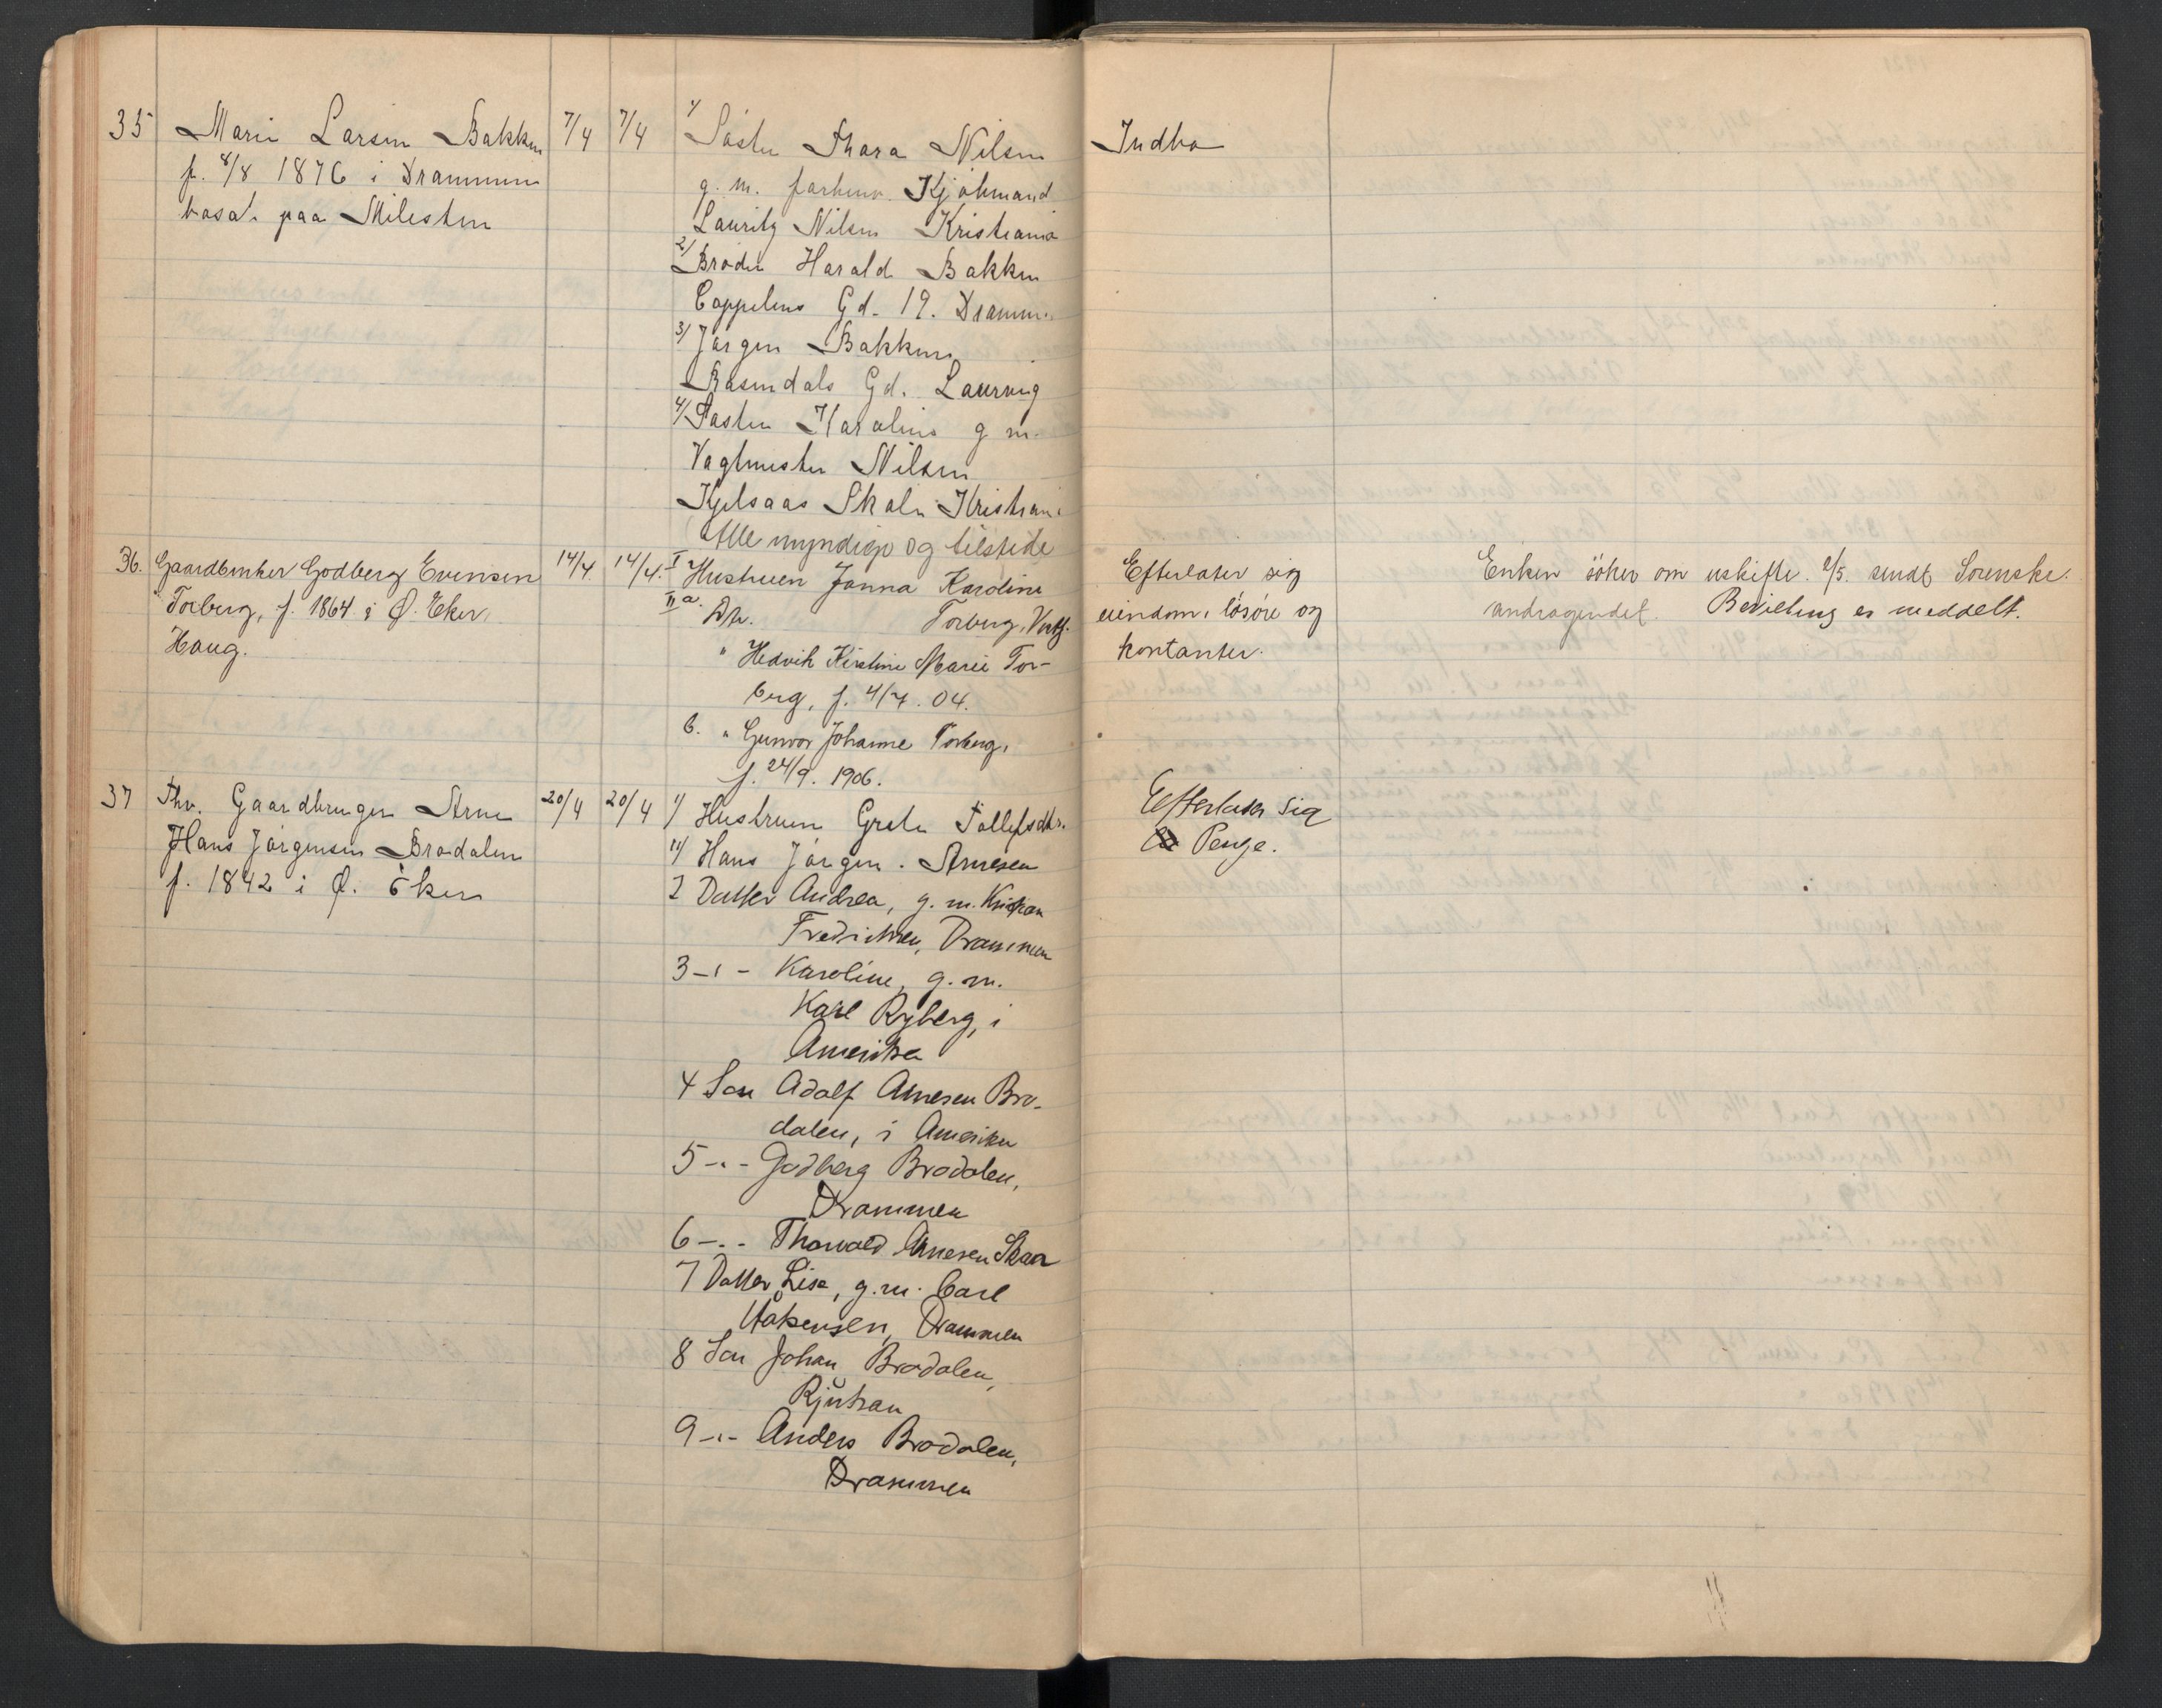 35 Marie Larsen Bakken 7/4 7/4 1/ Søster Thora Nilsen Indbo
f. 8/8 1876 i Drammen g. m. forhenv. Kjøbmand
bosat paa Milesten Lauritz Nilsen Kristiania
2/ Broder Harald Bakken
Cappelens Gd. 19. Drammen
3/ Jørgen Bakken
Rosendals Gd. Laurvig
4/ Søster Karoline g m.
Vagtmester Nilsen
Kjelsaas Skole Kristiania
Alle myndige og tilstede
36. Gaardbruker Godberg Evensen 14/4. 14/4. I Hustruen Janna Karoline Efterlater sig Enken söker om uskifte. 2/5. sendt Sorenskr.
Torberg, f. 1864 i Ø. Eker, II a. Dtr. Torberg, eiendom, lösöre og andragendet. Bevilling er meddelt.
Haug. " Hedvik Kirstine Marie Tor- kontanter.
berg, f. 4/7. 04.
b. " Gunvor Johanne Torberg,
f. 24/9. 1906.
37 Fhv. Gaardbruger Arne 20/4 20/4 1/ Hustruen Grete Tollefsdtr. Efterlater sig
Hans Jørgensen Brodalen 1/ Hans Jørgen. Arnesen Penge.
f. 1842 i Ø. Eker 2 Datter Andrea, g. m. Kristian
Fredriksen, Drammen
3 -"- Karoline, g. m.
Karl Ryberg, i
Amerika
4 Søn Adolf Arnesen Bro-
dalen, i Amerika
5 -"- Godberg Brodalen,
Drammen
6 -"- Thorvald Arnesen Skaar
7 Datter Lise, g. m. Carl
Håkensen, Drammen
8 Søn Johan Brodalen,
Rjukan
9 -"- Anders Brodalen,
Drammen